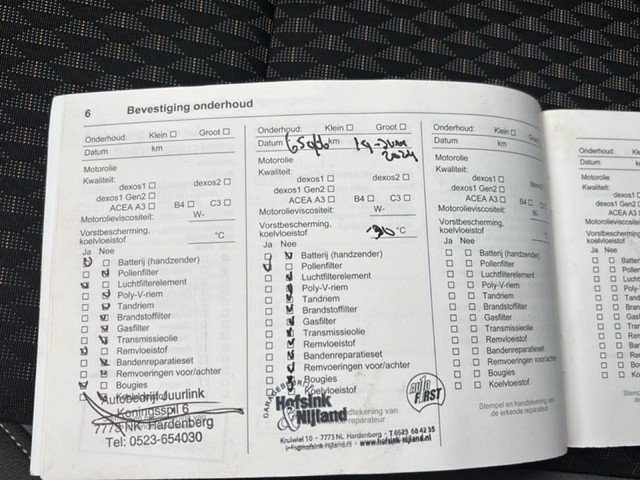 6 Bevestiging onderhoud
Onderhoud: Klein Groot
Datum km
Motorolie
Kwaliteit:
dexos1 dexos2
dexos1 Gen2
ACEA A3 B4 C3
Motorolieviscositeit: W-
Vorstbescherming,
koelvloeistof °C
Ja Nee
Batterij (handzender)
Pollenfilter
Luchtfilterelement
Poly-V-riem
Tandriem
Brandstoffilter
Gasfilter
Transmissieolie
Remvloeistof
Bandenreparatieset
Remvoeringen voor/achter
Bougies
Autobedrijf Juurlink
Koningsspil 6
7773 NK Hardenberg
Tel: 0523-654030
Onderhoud: Klein Groot
Datum km 2024
Motorolie
Kwaliteit:
dexos1 dexos2
dexos1 Gen2
ACEA A3 B4 C3
Motorolieviscositeit: W-
Vorstbescherming,
koelvloeistof °C
Ja Nee
Batterij (handzender)
Pollenfilter
Luchtfilterelement
Poly-V-riem
Tandriem
Brandstoffilter
Gasfilter
Transmissieolie
Remvloeistof
Bandenreparatieset
Remvoeringen voor/achter
Bougies
Koelvloeistof
Hofsink
Nijland
FIRST
erkende reparateur
Kruiwiel 10 - 7773 NL Hardenberg - T 0523 68 42 35
www.hofsink-nijland.nl
Onderhoud: Klein Groot
Datum km
Motorolie
Kwaliteit:
dexos1 dexos2
dexos1 Gen2
ACEA A3 B4 C3
Motorolieviscositeit: W-
Vorstbescherming,
koelvloeistof
Ja Nee
Batterij (handzender)
Pollenfilter
Luchtfilterelement
Poly-V-riem
Tandriem
Brandstoffilter
Gasfilter
Transmissieolie
Remvloeistof
Bandenreparatieset
Remvoeringen voor/achter
Bougies
Koelvloeistof
Stempel en handtekening van
de erkende reparateur